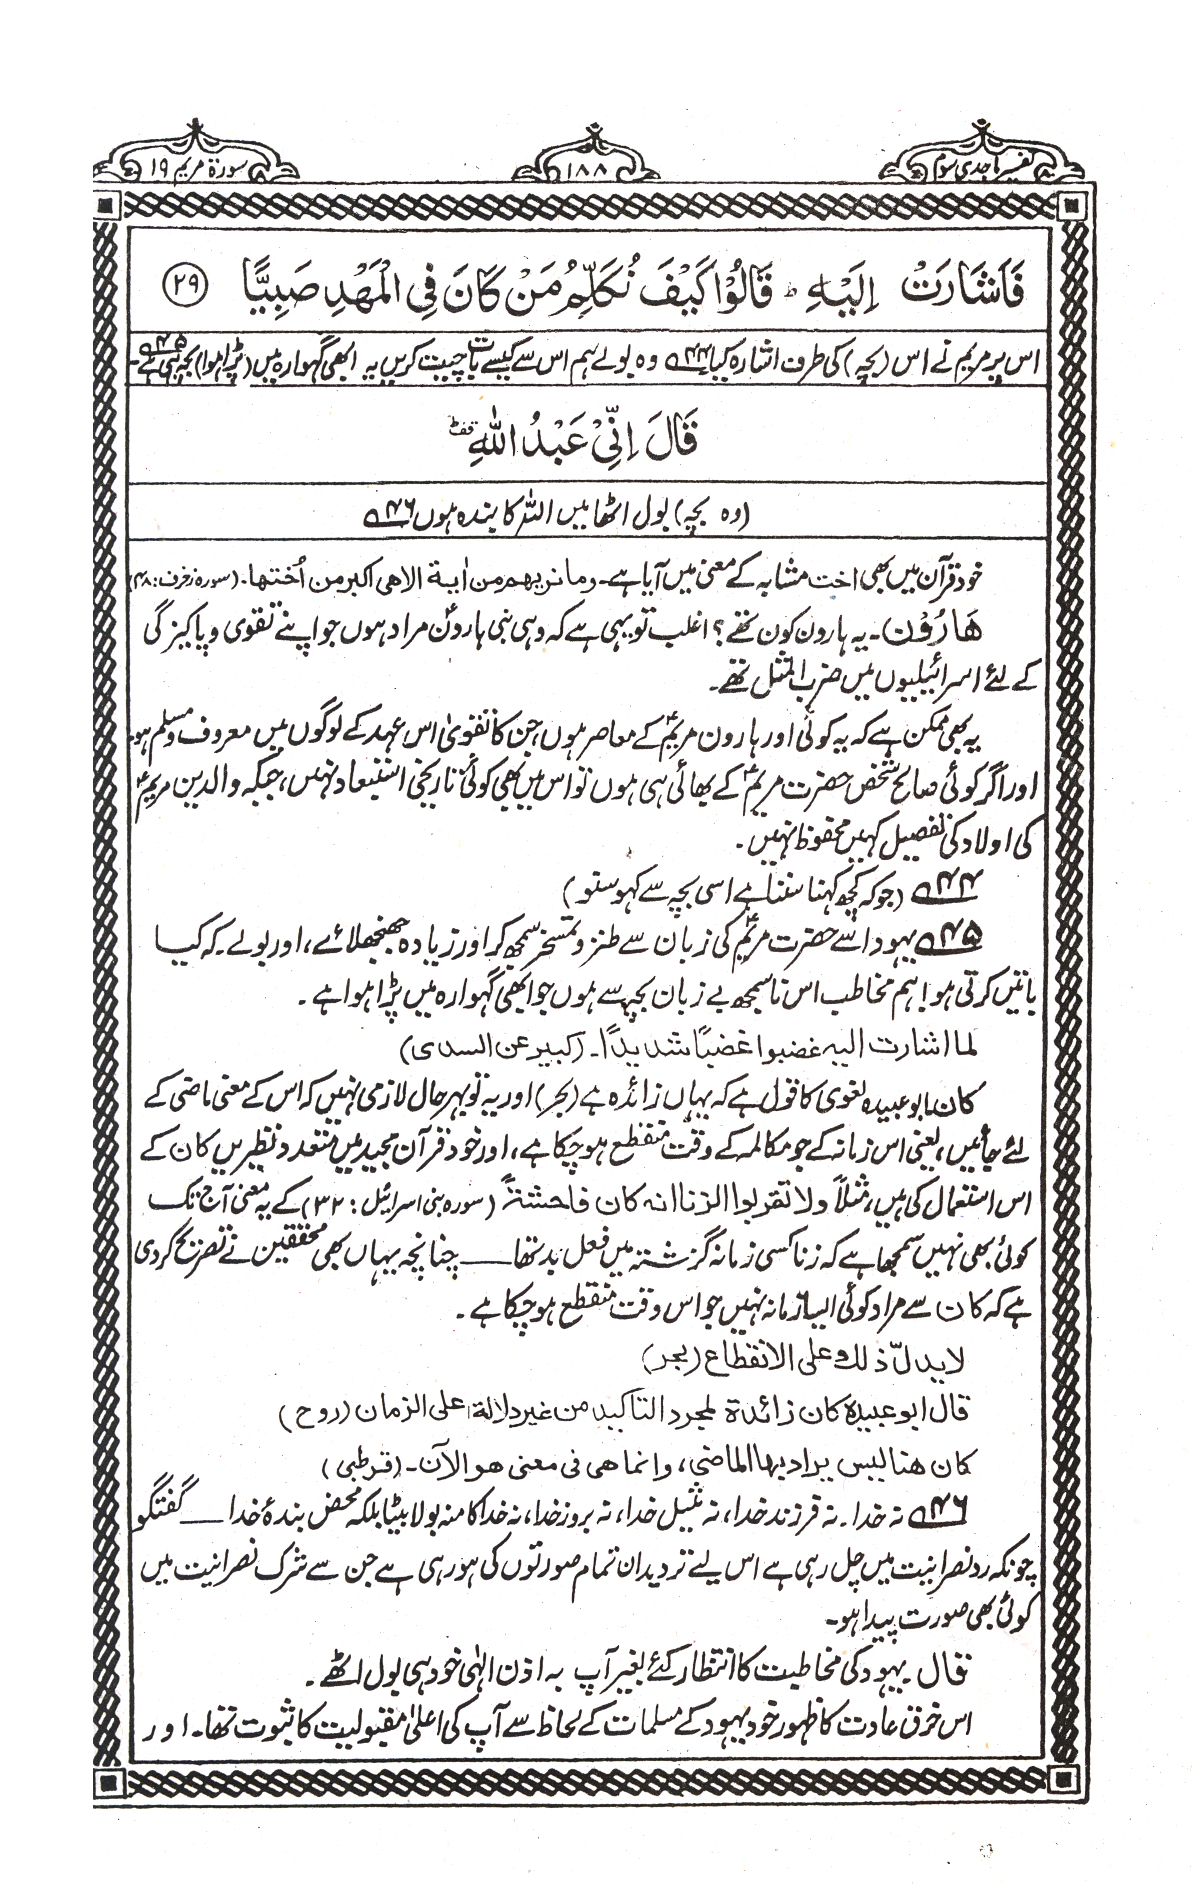 تفسیر ماجدی سوم
۱۸۸
سورۃ مریم ۱۹
فَاَشَارَتْ اِلَيْهِ ؕ قَالُوْا كَيْفَ نُكَلِّمُ مَنْ كَانَ فِي الْمَهْدِ صَبِيًّا ۲۹
اس پر مریم نے اس (بچہ) کی طرف اشارہ کیا ۴۴ وہ بولے ہم اس سے کیسے بات چیت کریں یہ ابھی گہوارہ میں (پڑا ہوا) بچہ ہی ہے ۴۵
قَالَ اِنِّيْ عَبْدُ اللّٰهِ
(وہ بچہ) بول اٹھا میں اللہ کا بندہ ہوں ۴۶
خود قرآن میں بھی اخت مشابہ کے معنی میں آیا ہے۔ وما نریھم من اٰیة الا ھی اکبر من اُختھا۔ (سورہ زخرف: ۴۸)
ھَارُوْن۔ یہ ہارون کون تھے؟ اغلب تو یہی ہے کہ وہی نبی ہارونؑ مراد ہوں جو اپنے تقوی و پاکیزگی
کے لئے اسرائیلیوں میں ضرب المثل تھے۔
یہ بھی ممکن ہے کہ یہ کوئی اور ہارون مریمؑ کے معاصر ہوں، جن کا تقویٰ اس عہد کے لوگوں میں معروف و مسلم ہو۔
اور اگر کوئی صالح شخص حضرت مریمؑ کے بھائی ہی ہوں تو اس میں بھی کوئی تاریخی استبعاد نہیں، جبکہ والدین مریمؑ
کی اولاد کی تفصیل کہیں محفوظ نہیں۔
۴۴ (جو کہ کچھ کہنا سننا ہے اسی بچہ سے کہو سنو)
۴۵ یہود اسے حضرت مریمؑ کی زبان سے طنز و تمسخر سمجھ کر اور زیادہ جھنجھلائے، اور بولے۔ کہ کیا
باتیں کرتی ہو! ہم مخاطب اس ناسمجھ بے زبان بچہ سے ہوں جو ابھی گہوارہ میں پڑا ہوا ہے۔
لما اشارت الیہ غضبوا غضبًا شدیدًا۔ (کبیر عن السدی)
کان ابو عبیدہ لغوی کا قول ہے کہ یہاں زائدہ ہے (بحر) اور یہ تو بہر حال لازمی نہیں کہ اس کے معنی ماضی کے
لئے جائیں، یعنی اس زمانہ کے جو مکالمہ کے وقت منقطع ہو چکا ہے، اور خود قرآن مجید میں متعدد نظیریں کان کے
اس استعمال کی ہیں، مثلاً ولا تقربوا الزنا انہ کان فاحشةً (سورہ بنی اسرائیل: ۳۲) کے یہ معنی آج تک
کوئی بھی نہیں سمجھا ہے کہ زنا کسی زمانہ گزشتہ میں فعل بد تھا ـــــ چنانچہ یہاں بھی محققین نے تصریح کردی
ہے کہ کان سے مراد کوئی ایسا زمانہ نہیں جو اس وقت منقطع ہو چکا ہے۔
لا یدلّ ذلک علی الانقطاع (بحر)
قال ابو عبیدہ کان زائدة لمجرد التاکید من غیر دلالة علی الزمان (روح)
کان ھنا لیس یراد بھا الماضی، وانما ھی فی معنی ھو الآن۔ (قرطبی)
۴۶ نہ خدا۔ نہ فرزند خدا، نہ مثیل خدا، نہ بروز خدا، نہ خدا کا منہ بولا بیٹا بلکہ محض بندۂ خدا ـــــ گفتگو
چونکہ رد نصرانیت میں چل رہی ہے اس لیے تردید ان تمام صورتوں کی ہو رہی ہے جن سے شرک نصرانیت میں
کوئی بھی صورت پیدا ہو۔
قال۔ یہود کی مخاطبت کا انتظار کئے بغیر آپ بہ اذن الٰہی خود ہی بول اٹھے۔
اس خرق عادت کا ظہور خود یہود کے مسلمات کے لحاظ سے آپ کی اعلیٰ مقبولیت کا ثبوت تھا۔ اور